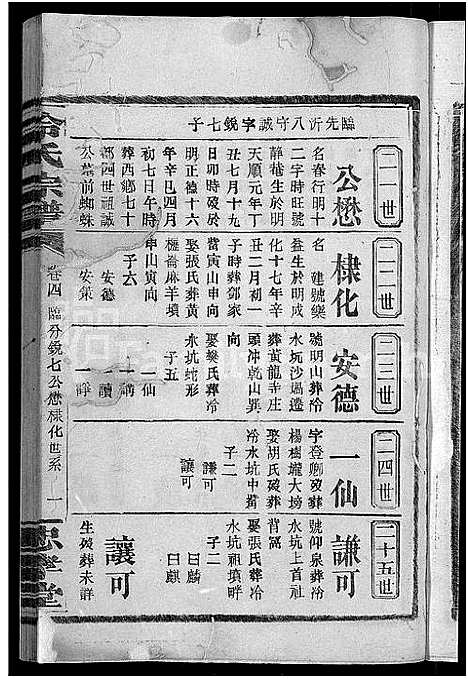 臨先沂八守誠字銳七子
二一世
公懋
名春行明十
二字時旺號
靜恠生於明
天順元年丁
丑七月十九
日卯時歿於
明正德十六
年辛巳四月
初七日午時
葬西鄉七十
都四世祖誠
公墓前蜘蛛
二二世
棣化
名 建號樂
益生於明成
化十七年辛
丑二月初一
子時葬鄧家
當寅山申向
娶張氏葬黃
榧崙麻羊墳
申山寅向
子六
安德
安策
二三世
安德
號明山葬冷
水坑沙塲邊
葬黃龍寺庄
頭冲乾山巽
向
娶樊氏葬冷
水坑蛇形
子五
一仙
一講
一讀
一諍
二四世
一仙
字登卿歿葬
楊樹壠大塝
娶胡氏歿葬
冷水坑中撱
子二
謙可
讓可
二十五世
謙可
號仰泉葬冷
水坑上首祖
背窩
娶張氏葬冷
水坑祖墳畔
子二
曰麟
曰麒
讓可
生歿葬未詳
冷氏宗譜
卷四 臨分銳七公懋棣化世系 一
忠孝堂